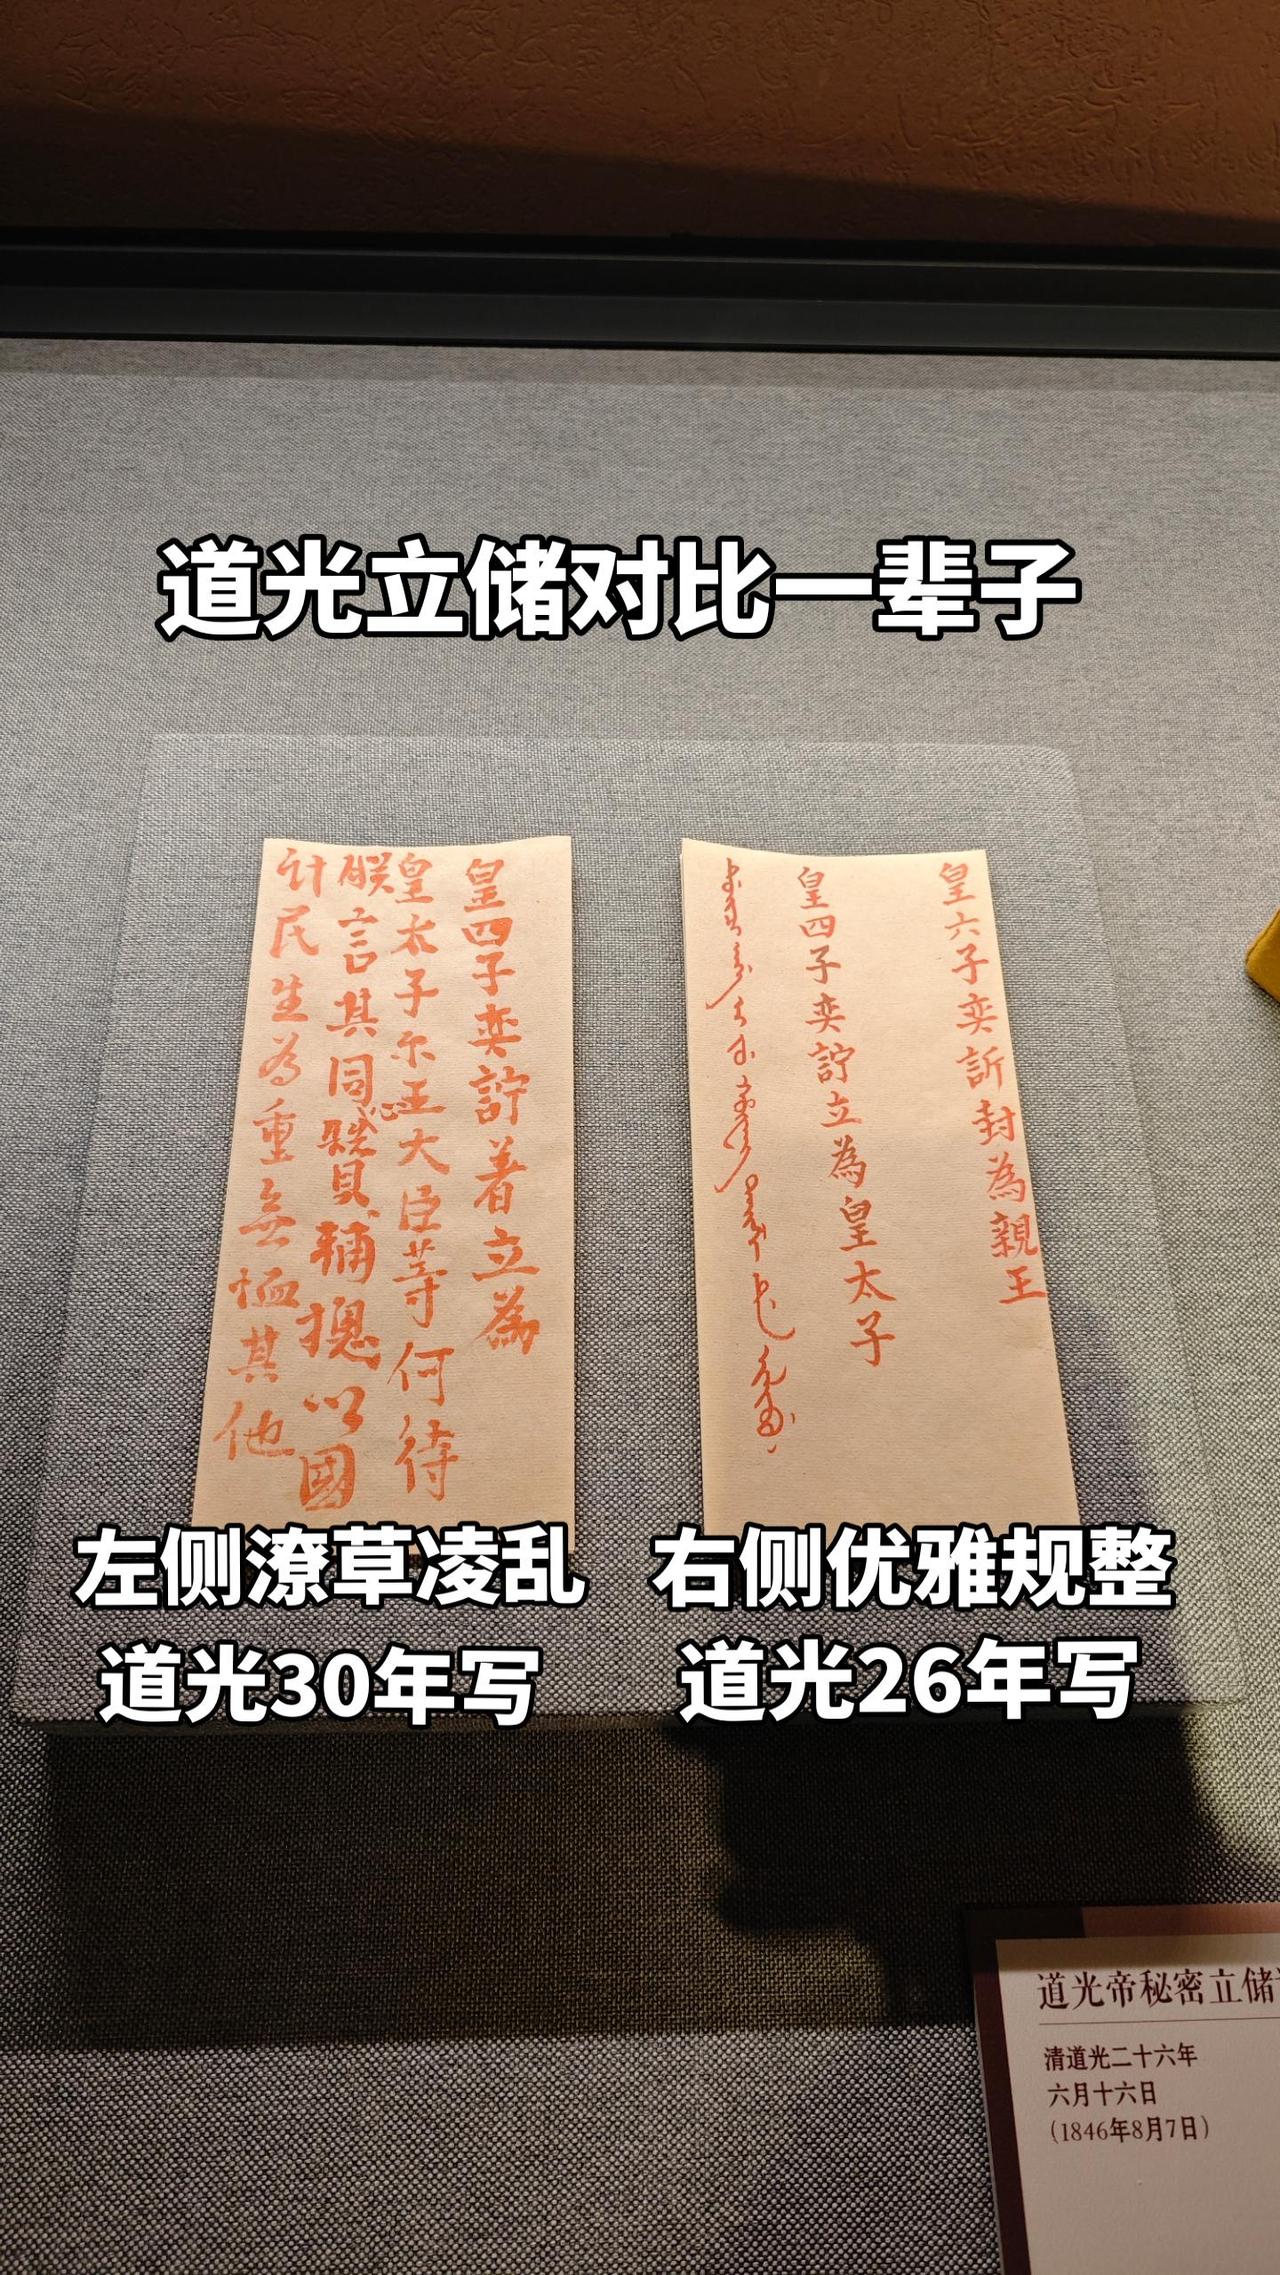 道光立储对比一辈子
皇四子奕詝着立為
皇太子尔王大臣等何待
朕言其同心賛輔摠以國
計民生為重無恤其他
皇六子奕訢封為親王
皇四子奕詝立為皇太子
左侧潦草凌乱
道光30年写
右侧优雅规整
道光26年写
道光帝秘密立储
清道光二十六年
六月十六日
(1846年8月7日)